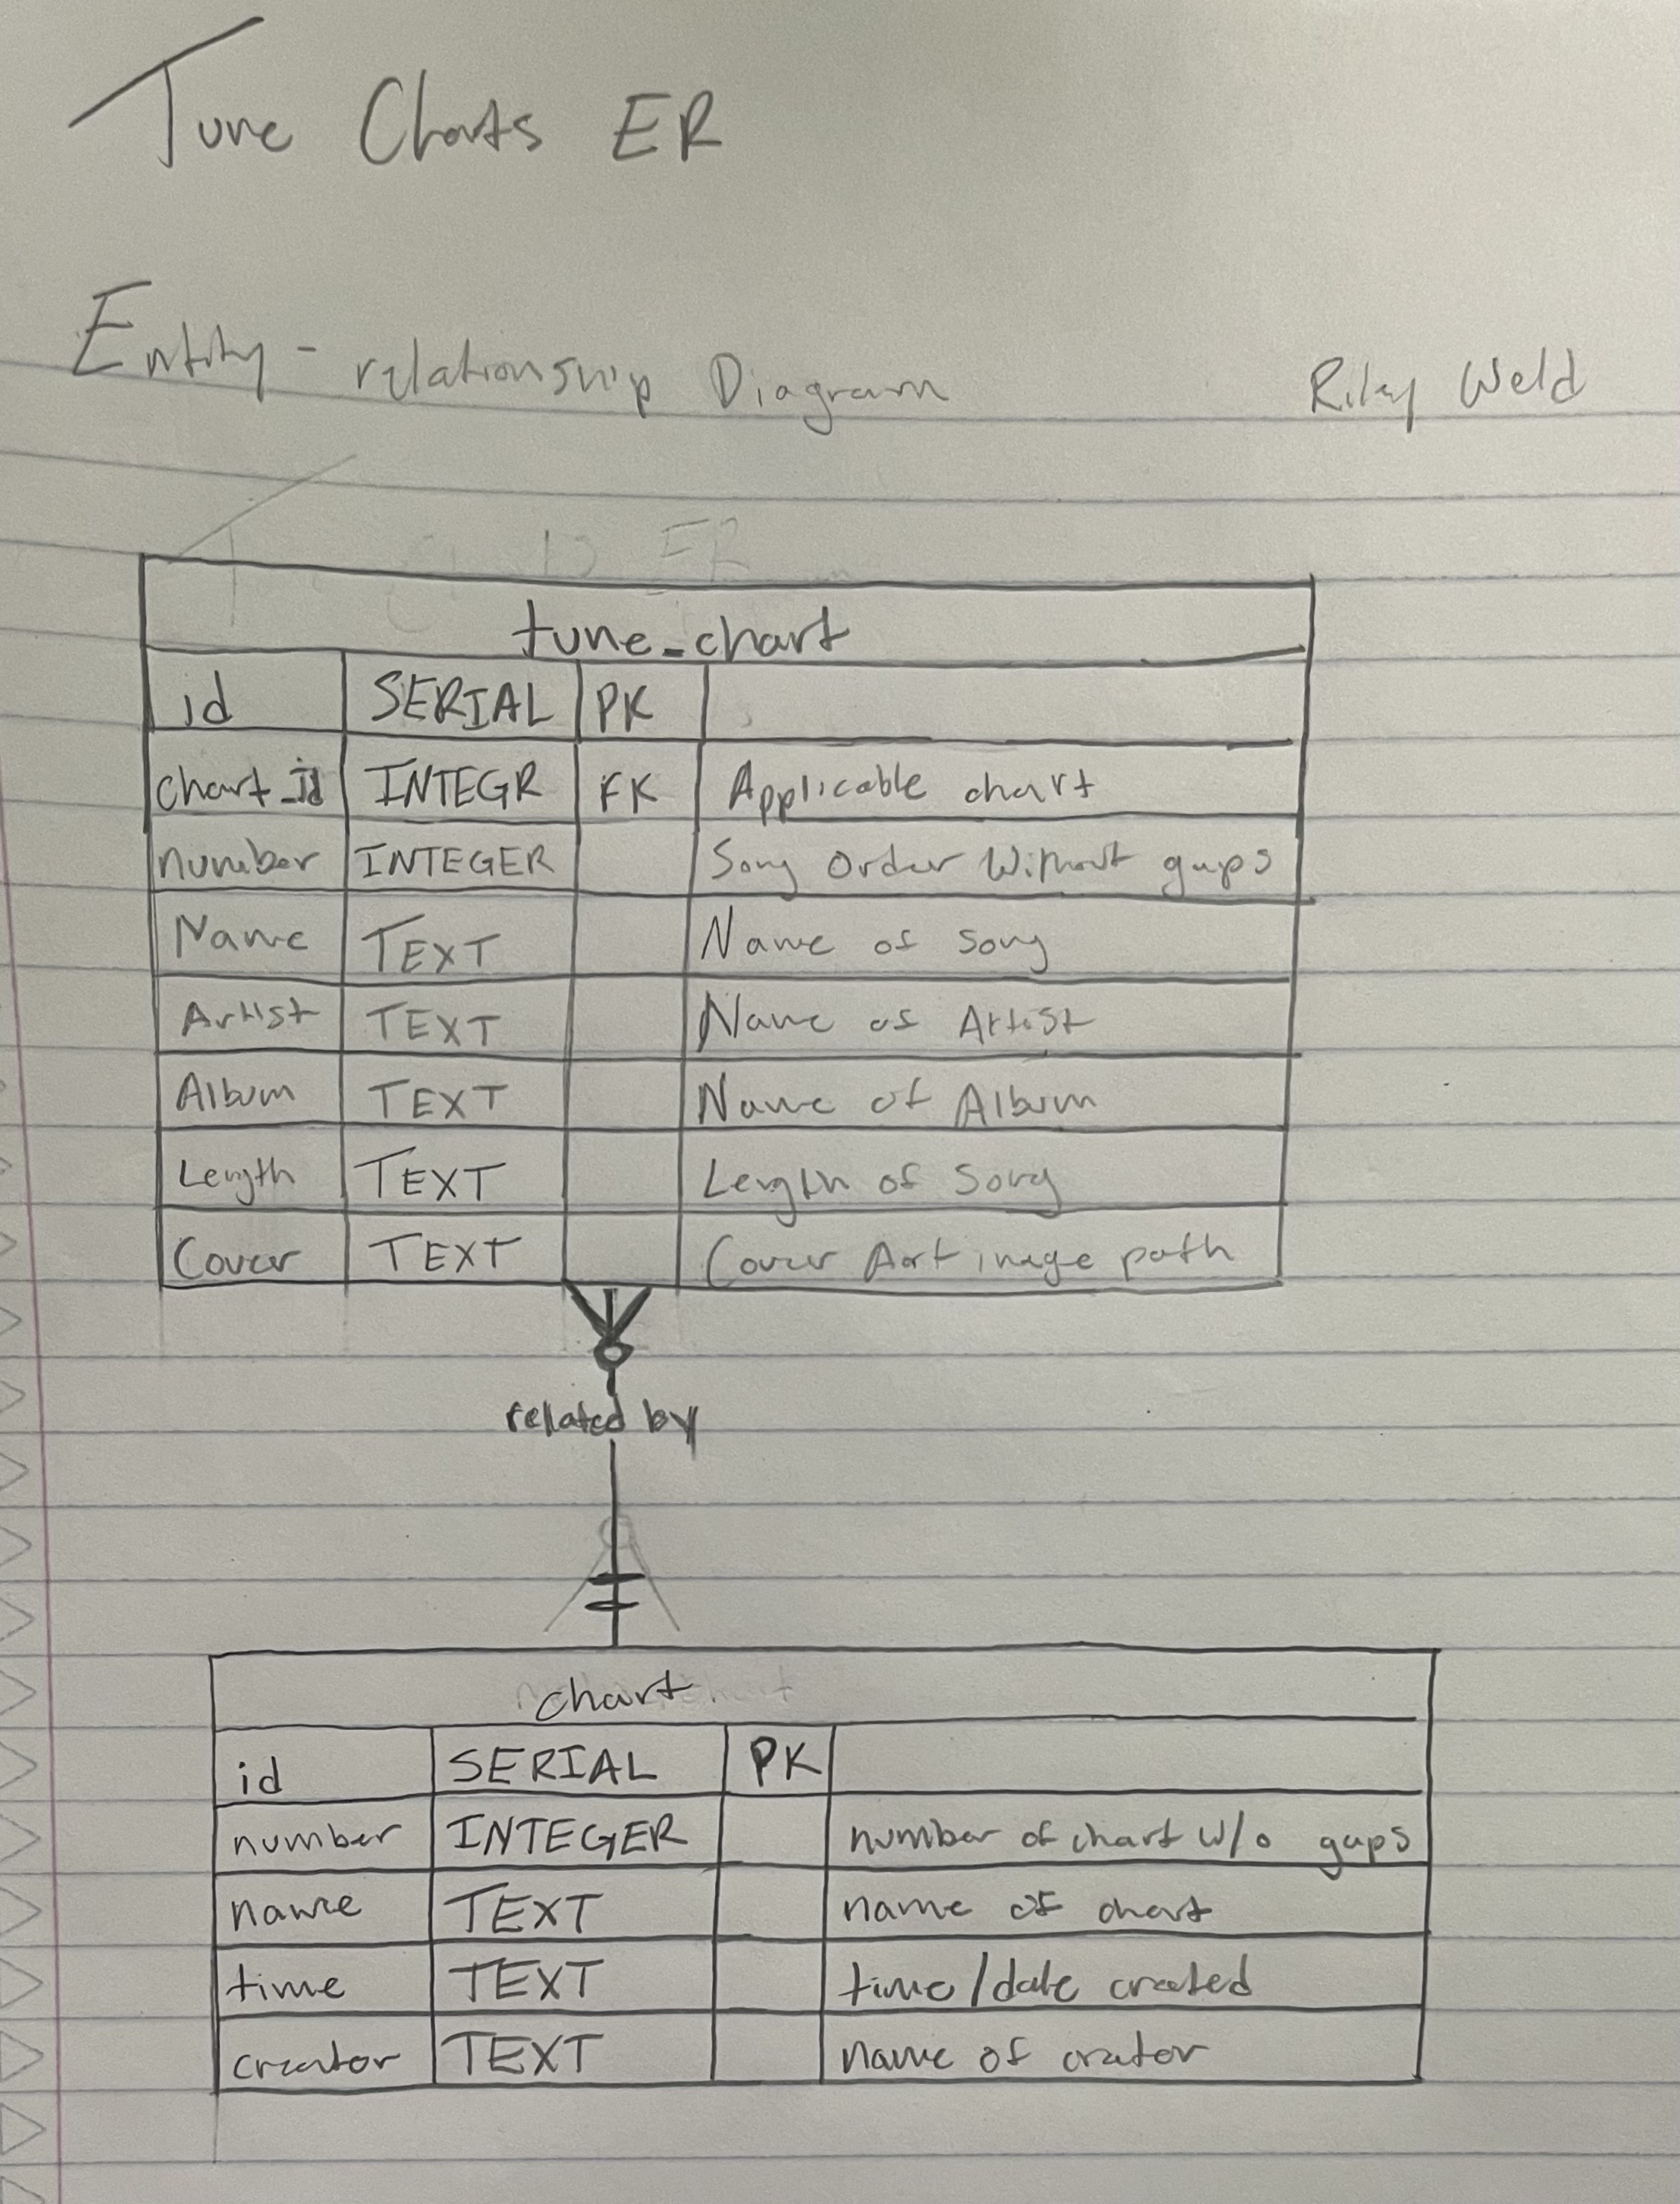 Tune Charts ER
Entity-relationship Diagram Riley Weld
tune_chart
id SERIAL PK
chart_id INTEGR FK Applicable chart
number INTEGER Song Order Without gaps
Name TEXT Name of song
Artist TEXT Name of Artist
Album TEXT Name of Album
Length TEXT Length of Song
Cover TEXT Cover Art image path
related by
chart
id SERIAL PK
number INTEGER number of chart w/o gaps
name TEXT name of chart
time TEXT time/date created
creator TEXT name of crator